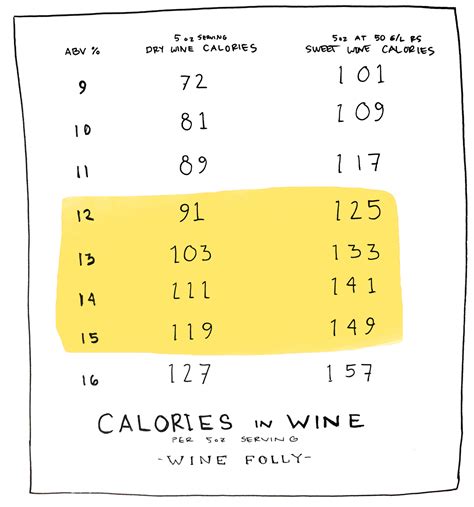 ABV % 5oz SERVING DRY WINE CALORIES 5oz AT 50 G/L RS SWEET WINE CALORIES
9 72 101
10 81 109
11 89 117
12 91 125
13 103 133
14 111 141
15 119 149
16 127 157
CALORIES IN WINE
PER 5oz SERVING
-WINE FOLLY-